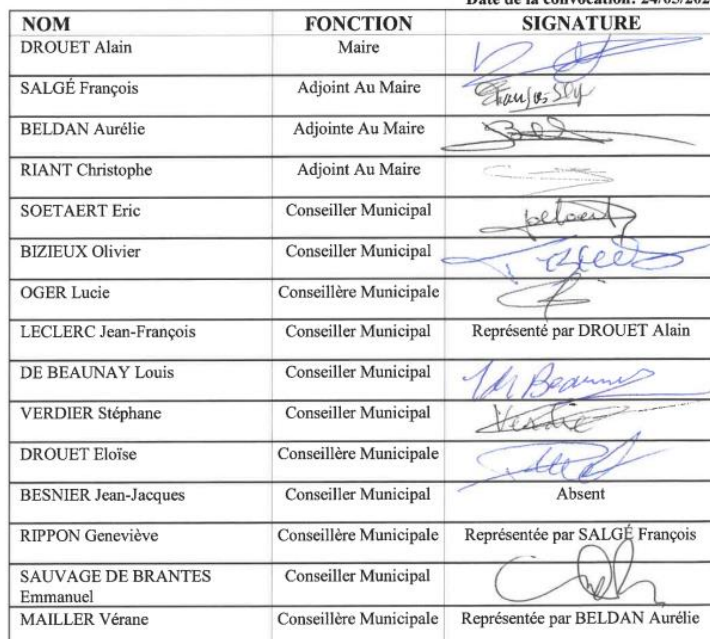 Date de la convocation: 24/05/202
NOM FONCTION SIGNATURE
DROUET Alain Maire
SALGÉ François Adjoint Au Maire
BELDAN Aurélie Adjointe Au Maire
RIANT Christophe Adjoint Au Maire
SOETAERT Eric Conseiller Municipal
BIZIEUX Olivier Conseiller Municipal
OGER Lucie Conseillère Municipale
LECLERC Jean-François Conseiller Municipal Représenté par DROUET Alain
DE BEAUNAY Louis Conseiller Municipal
VERDIER Stéphane Conseiller Municipal
DROUET Eloïse Conseillère Municipale
BESNIER Jean-Jacques Conseiller Municipal Absent
RIPPON Geneviève Conseillère Municipale Représentée par SALGÉ François
SAUVAGE DE BRANTES Conseiller Municipal
Emmanuel
MAILLER Vérane Conseillère Municipale Représentée par BELDAN Aurélie